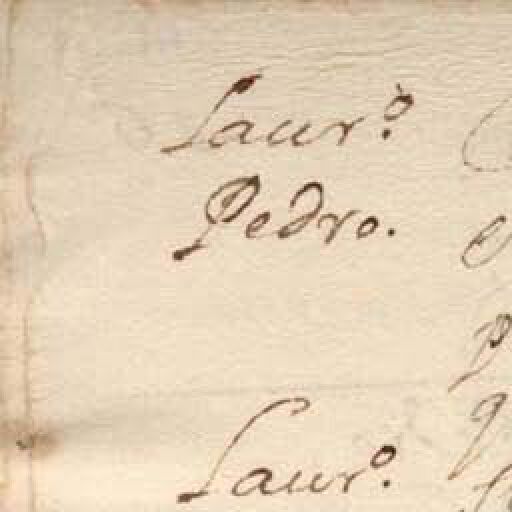 Laur.º
Pedro.
Laur.º